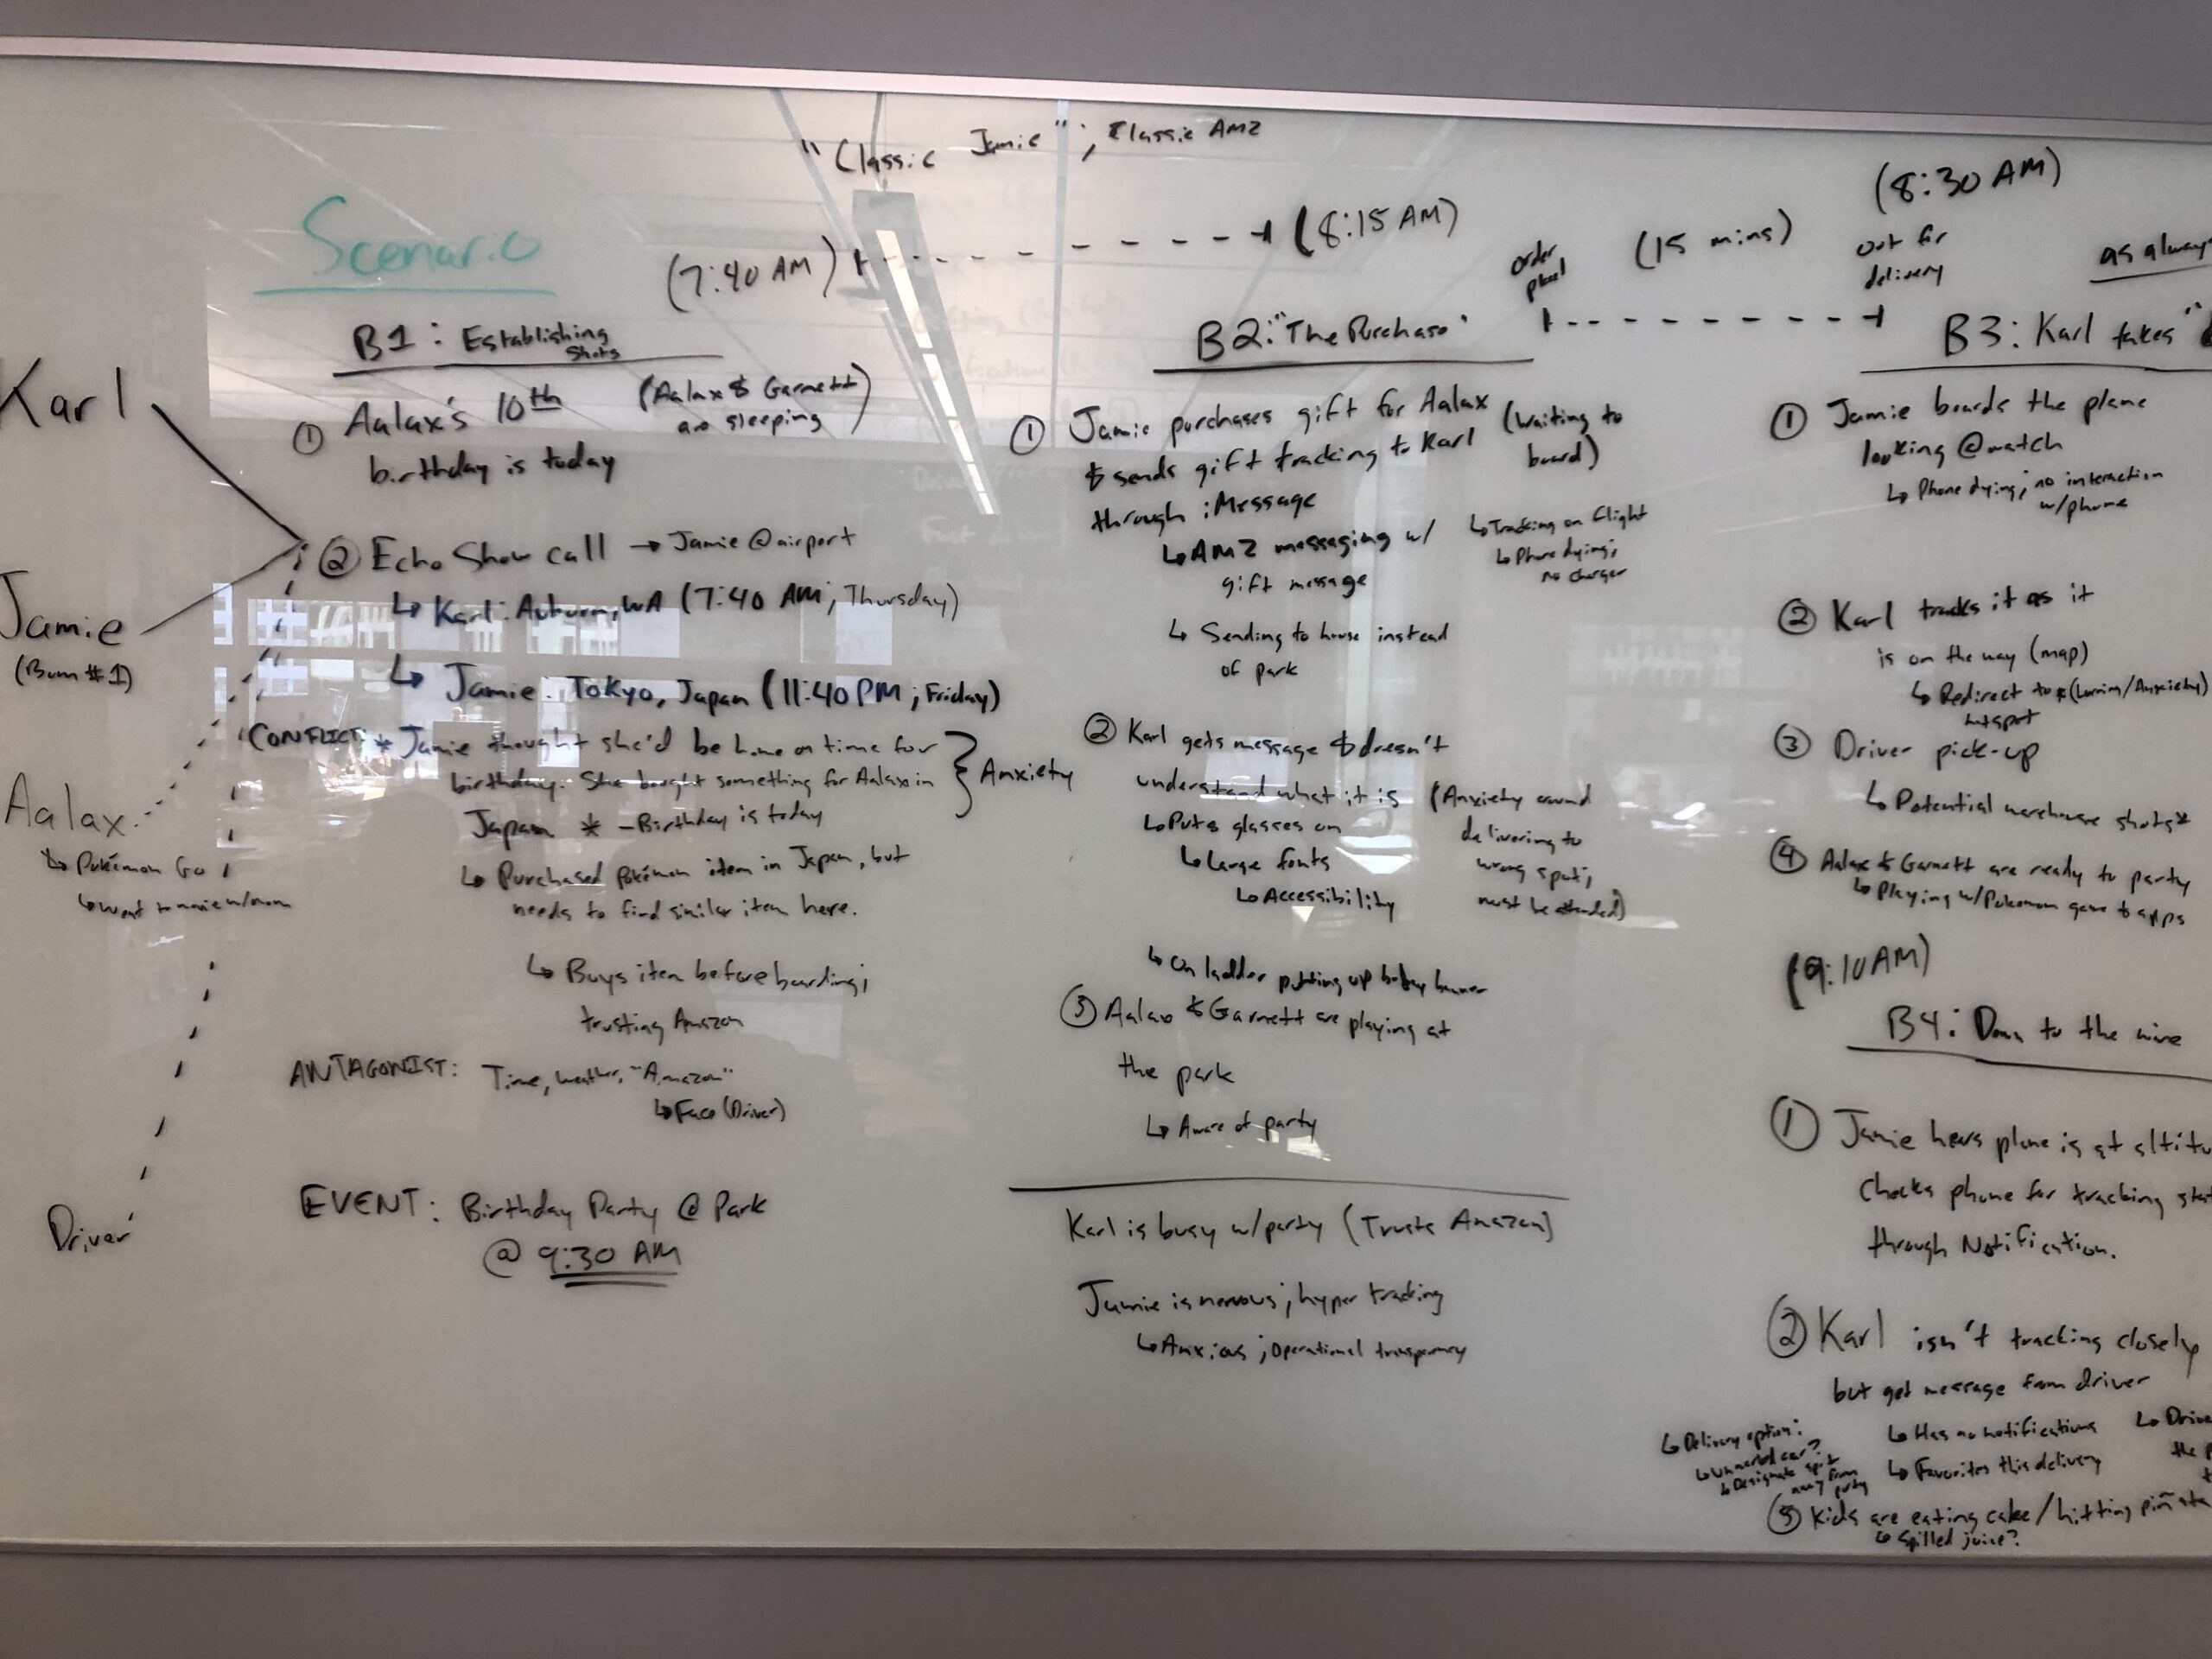 "Classic Jamie"; Classic AMZ
Scenario
(7:40 AM)
(8:15 AM)
order
(15 mins)
(8:30 AM)
out for
delivery
as always
Karl
Jamie
(Bum #1)
Aalax
↳ Pokémon Go
↳ went to movie w/mom
Driver
B1: Establishing
Shots
① Aalax's 10th
birthday is today
(Aalax & Garnett
are sleeping)
② Echo Show call → Jamie @ airport
↳ Karl: Auburn, WA (7:40 AM; Thursday)
↳ Jamie: Tokyo, Japan (11:40 PM; Friday)
CONFLICT: * Jamie thought she'd be home on time for
birthday. She bought something for Aalax in
Japan * - Birthday is today
} Anxiety
↳ Purchased Pokémon item in Japan, but
needs to find similar item here.
↳ Buys item before boarding;
trusting Amazon
ANTAGONIST: Time, weather, "Amazon"
↳ Face (Driver)
EVENT: Birthday Party @ Park
@ 9:30 AM
B2: "The Purchase"
① Jamie purchases gift for Aalax
& sends gift tracking to Karl
through iMessage
(waiting to
board)
↳ AMZ messaging w/
gift message
↳ Tracking on flight
↳ Phone dying;
no charger
↳ Sending to house instead
of park
② Karl gets message & doesn't
understand what it is
↳ Puts glasses on
↳ Large fonts
↳ Accessibility
(Anxiety around
delivering to
wrong spot;
must be attended)
↳ On ladder putting up bday banner
③ Aalax & Garnett are playing at
the park
↳ Aware of party
Karl is busy w/party (Trusts Amazon)
Jamie is nervous; hyper tracking
↳ Anxious; Operational transparency
B3: Karl takes "
① Jamie boards the plane
looking @ watch
↳ Phone dying; no interaction
w/phone
② Karl tracks it as it
is on the way (map)
↳ Redirect to *
hotspot
③ Driver pick-up
↳ Potential warehouse shots*
④ Aalax & Garnett are ready to party
↳ Playing w/Pokemon game & apps
(9:10 AM)
B4: Down to the wire
① Jamie hears plane is at altitu
Checks phone for tracking stat
through Notification.
② Karl isn't tracking closely
but get message from driver
↳ Delivery option:
↳ Unmarked car?
↳ Designate spot
away from
party
↳ Has no notifications
↳ Favorites this delivery
↳ Drive
the p
③ Kids are eating cake/hitting piñata
↳ Spilled juice?